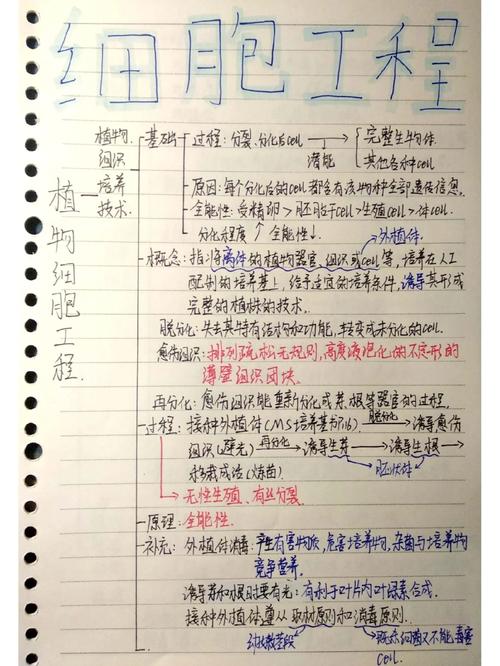 细胞工程
植物细胞工程.
植物组织培养技术.
基础 过程: 分裂、分化后cell → 完整生物体.
潜能 其他各种cell
原因: 每个分化后的cell都含有该物种全部遗传信息.
全能性: 受精卵>胚胎干cell>生殖cell>体cell.
分化程度↑全能性↓.
外植体
概念: 指将离体的植物器官、组织或cell等, 培养在人工
配制的培养基上, 给予适宜的培养条件, 诱导其形成
完整的植株的技术.
脱分化: 失去其特有结构和功能, 转变成未分化的cell.
愈伤组织: 排列疏松无规则, 高度液泡化的不定形的
薄壁组织团块.
再分化: 愈伤组织能重新分化成芽、根等器官的过程.
过程: 接种外植体(MS培养基 脱分化→诱导愈伤
组织(避光) 再分化→诱导生芽→诱导生根→
移栽成活(炼苗). 胚状体
无性生殖、有丝分裂
原理: 全能性.
补充: 外植体消毒: 产生有害物质, 危害培养物, 杂菌与培养物
竞争营养.
诱导芽和根时要有光: 有利于叶片内叶绿素合成.
接种外植体遵从取材原则和消毒原则.
幼嫩茎段 既杀细菌又不能毒害
cell.